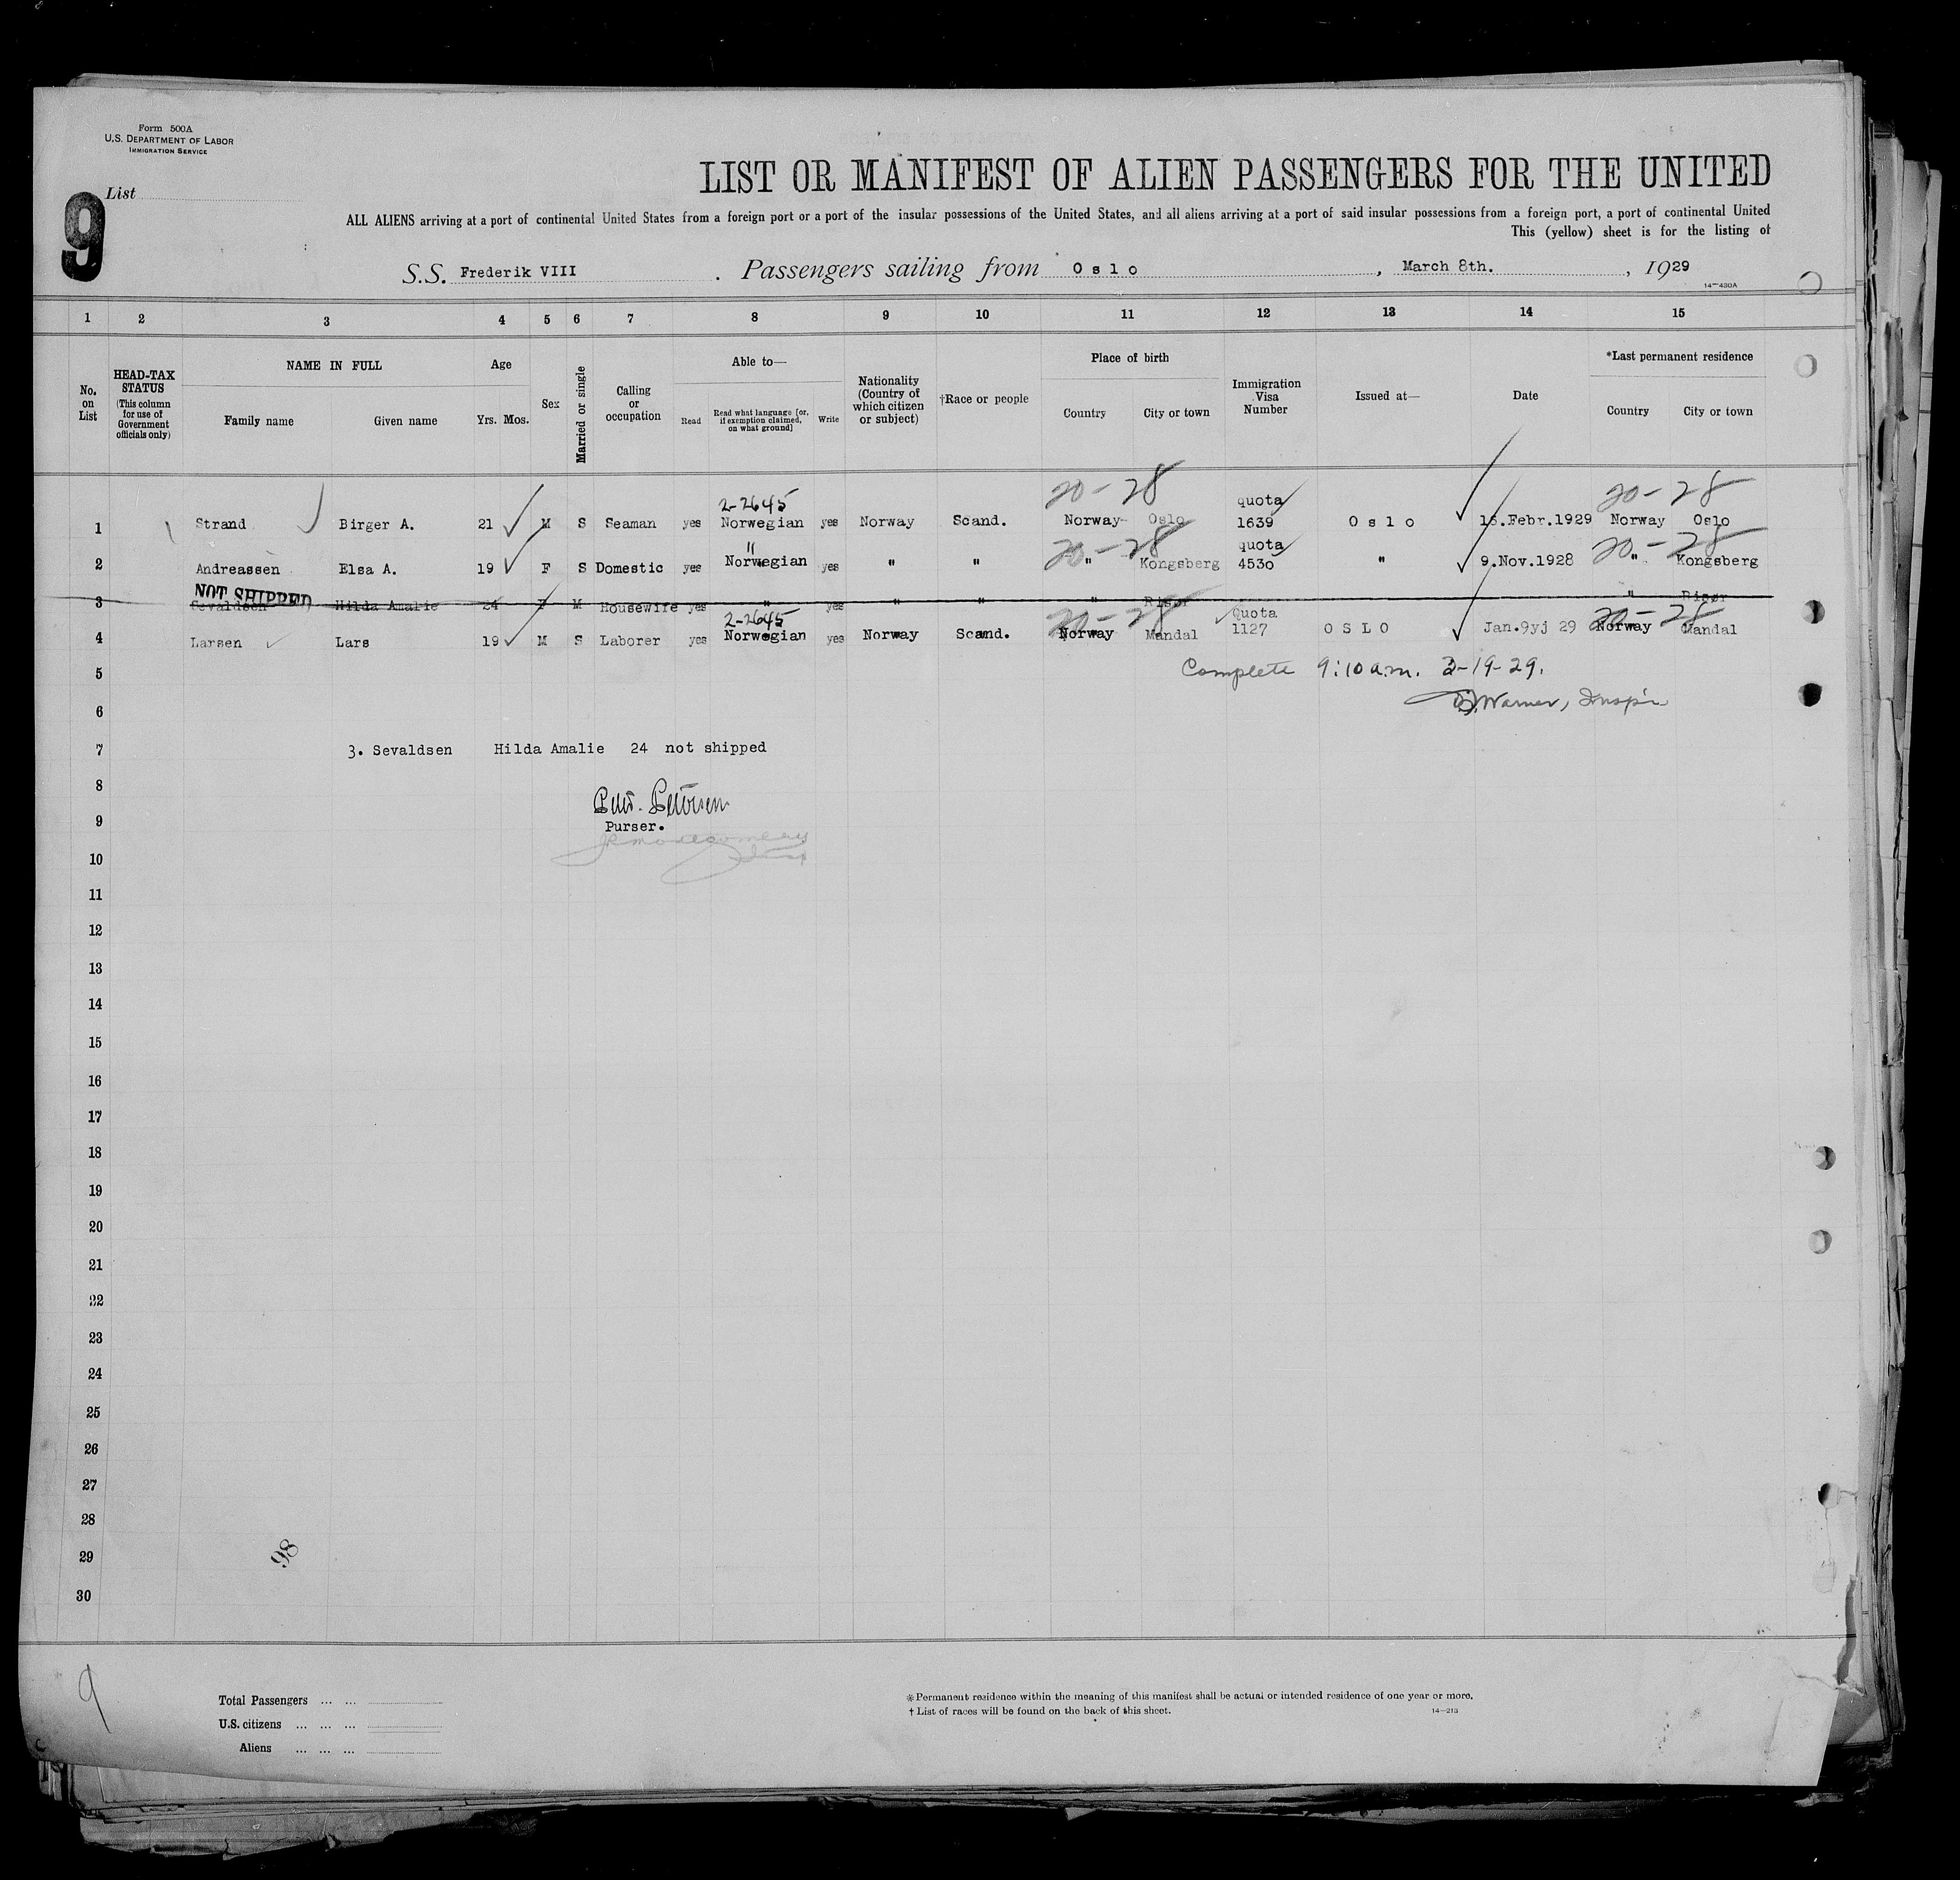 Form 500A
U.S. DEPARTMENT OF LABOR
IMMIGRATION SERVICE
List
9
LIST OR MANIFEST OF ALIEN PASSENGERS FOR THE UNITED
ALL ALIENS arriving at a port of continental United States from a foreign port or a port of the insular possessions of the United States, and all aliens arriving at a port of said insular possessions from a foreign port, a port of continental United
This (yellow) sheet is for the listing of
S.S. Frederik VIII. Passengers sailing from Oslo, March 8th., 1929
14—430A
1 2 3 4 5 6 7 8 9 10 11 12 13 14 15
No. on List
HEAD-TAX STATUS (This column for use of Government officials only)
NAME IN FULL
Family name Given name
Age
Yrs. Mos.
Sex
Married or single
Calling or occupation
Able to—
Read Read what language [or, if exemption claimed, on what ground] Write
Nationality (Country of which citizen or subject)
†Race or people
Place of birth
Country City or town
Immigration Visa Number
Issued at—
Date
*Last permanent residence
Country City or town
2-2645 20-28 quota 20-28
1 Strand Birger A. 21 M S Seaman yes Norwegian yes Norway Scand. Norway Oslo 1639 Oslo Febr.1929 Norway Oslo
" 20-28 quota 20-28
2 Andreassen Elsa A. 19 F S Domestic yes Norwegian yes " " " Kongsberg 4530 " 9.Nov.1928 " Kongsberg
NOT SHIPPED
3 Sevaldsen Hilda Amalie 24 F M Housewife yes " yes " " " Risør " Risør
2-2645 20-28 Quota 20-28
4 Larsen Lars 19 M S Laborer yes Norwegian yes Norway Scand. Norway Mandal 1127 OSLO Jan.9yj 29 Norway Mandal
5 Complete 9:10 a.m. 3-19-29.
6 Warner, Insp'r
7 3. Sevaldsen Hilda Amalie 24 not shipped
8
9 Purser.
10
11
12
13
14
15
16
17
18
19
20
21
22
23
24
25
26
27
28
29
30
98
9
Total Passengers ... ...
U.S. citizens ... ... ...
Aliens ... ... ...
*Permanent residence within the meaning of this manifest shall be actual or intended residence of one year or more.
† List of races will be found on the back of this sheet.
14—213